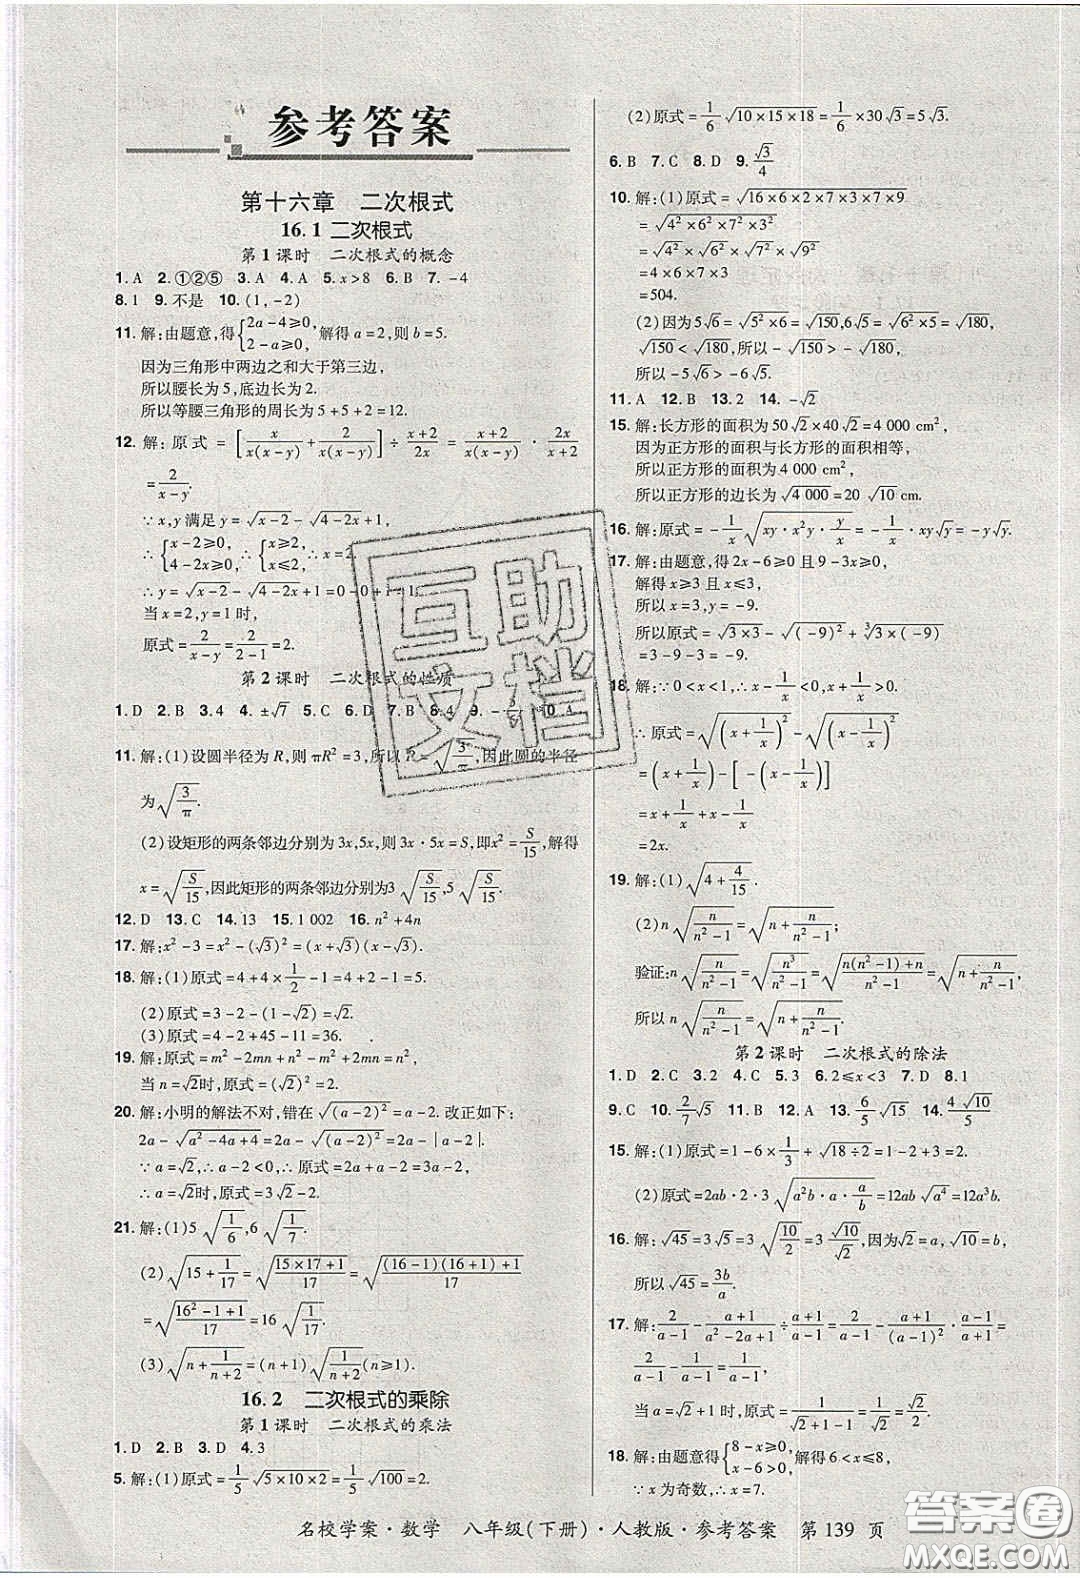 参考答案
第十六章　二次根式
16.1 二次根式
第1课时　二次根式的概念
1. A　2. ①②⑤　3. A　4. A　5. x>8　6. B　7. -4
8. 1　9. 不是　10. (1,-2)
11. 解:由题意,得{2a-4≥0, 2-a≥0, 解得a=2,则b=5.
因为三角形中两边之和大于第三边,
所以腰长为5,底边长为2.
所以等腰三角形的周长为5+5+2=12.
12. 解:原式=[x/(x(x-y))+2/(x(x-y))]÷(x+2)/2x=(x+2)/(x(x-y))·2x/(x+2)
=2/(x-y).
∵x,y满足y=√(x-2)-√(4-2x)+1,
∴{x-2≥0, 4-2x≥0, ∴{x≥2, x≤2, ∴x=2.
∴y=√(x-2)-√(4-2x)+1=0-0+1=1.
当x=2,y=1时,
原式=2/(x-y)=2/(2-1)=2.
第2课时　二次根式的性质
1. D　2. B　3. 4　4. ±√7　5. C　6. D　7. B　8. 4　9. -　10. A
11. 解:(1)设圆半径为R,则πR²=3,所以R=√(3/π),因此圆的半径
为√(3/π).
(2)设矩形的两条邻边分别为3x,5x,则3x·5x=S,即x²=S/15,解得
x=√(S/15),因此矩形的两条邻边分别为3√(S/15),5√(S/15).
12. D　13. C　14. 13　15. 1 002　16. n²+4n
17. 解:x²-3=x²-(√3)²=(x+√3)(x-√3).
18. 解:(1)原式=4+4×1/2-1=4+2-1=5.
(2)原式=3-2-(1-√2)=√2.
(3)原式=4-2+45-11=36.
19. 解:原式=m²-2mn+n²-m²+2mn=n²,
当n=√2时,原式=(√2)²=2.
20. 解:小明的解法不对,错在√((a-2)²)=a-2. 改正如下:
2a-√(a²-4a+4)=2a-√((a-2)²)=2a-|a-2|.
∵a=√2,∴a-2<0.∴原式=2a+a-2=3a-2,
∴a=√2时,原式=3√2-2.
21. 解:(1)5√(1/6),6√(1/7).
(2)√(15+1/17)=√((15×17+1)/17)=√(((16-1)(16+1)+1)/17)
=√((16²-1+1)/17)=16√(1/17).
(3)√(n+1/(n+2))=(n+1)√(1/(n+2)).
16.2　二次根式的乘除
第1课时　二次根式的乘法
1. D　2. B　3. D　4. 3
5. 解:(1)原式=1/5√(5×10×2)=1/5√100=2.
(2)原式=1/6√(10×15×18)=1/6×30√3=5√3.
6. B　7. C　8. D　9. √3/4
10. 解:(1)原式=√(16×6×2×7×3×7×9)
=√(4²×6²×7²×3²)
=√4²×√6²×√7²×√3²
=4×6×7×3
=504.
(2)因为5√6=√(5²×6)=√150,6√5=√(6²×5)=√180,
√150<√180,所以-√150>-√180.
所以-5√6>-6√5.
11. A　12. B　13. 2　14. -√2
15. 解:长方形的面积为50√2×40√2=4 000 cm²,
因为正方形的面积与长方形的面积相等,
所以正方形的面积为4 000 cm²,
所以正方形的边长为√(4 000)=20√10 cm.
16. 解:原式=-1/x√(xy·x²y·y/x)=-1/x·xy√y=-y√y.
17. 解:由题意,得2x-6≥0且9-3x≥0,
解得x≥3且x≤3,
所以x=3,y=-9.
所以原式=√(3×3)-√((-9)²)+∛(3×(-9))
=3-9-3=-9.
18. 解:∵0<x<1,∴x-1/x<0,x+1/x>0.
∴原式=√((x+1/x)²)-√((x-1/x)²)
=(x+1/x)-[-(x-1/x)]
=x+1/x+x-1/x
=2x.
19. 解:(1)√(4+4/15).
(2)n√(n/(n²-1))=√(n+n/(n²-1));
验证:n√(n/(n²-1))=√(n³/(n²-1))=√((n(n²-1)+n)/(n²-1))=√(n+n/(n²-1)),
所以n√(n/(n²-1))=√(n+n/(n²-1)).
第2课时　二次根式的除法
1. D　2. C　3. C　4. C　5. D　6. 2≤x<3　7. D　8. 1
9. C　10. 2/7√5　11. B　12. A　13. 6/5√15　14. 4√10/5
15. 解:(1)原式=1-6×1/3+√(18÷2)=1-2+3=2.
(2)原式=2ab·2·3√(a²b·a·a/b)=12ab√a⁴=12a³b.
16. 解:√45=3√5=3√(10/2)=3√10/√2,因为√2=a,√10=b,
所以√45=3b/a.
17. 解:2/(a-1)-(a+1)/(a²-2a+1)÷(a+1)/(a-1)=2/(a-1)-(a+1)/(a-1)²·(a-1)/(a+1)=
2/(a-1)-1/(a-1)=1/(a-1).
当a=√2+1时,原式=1/(√2+1-1)=1/√2=√2/2.
18. 解:由题意得{8-x≥0, x-6>0, 解得6<x≤8,
∵x为奇数,∴x=7.
互助文档
名校学案·数学　八年级(下册)·人教版·参考答案　第139页
答案圈
MXQE.COM